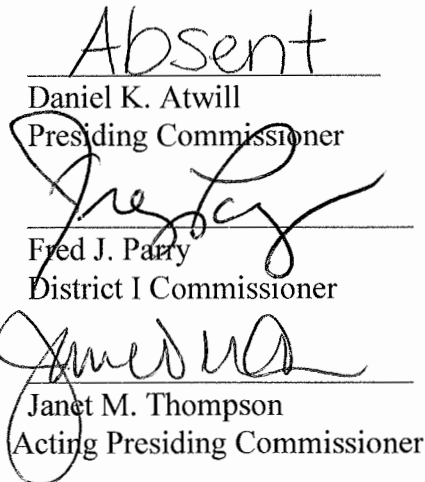 Absent
Daniel K. Atwill
Presiding Commissioner
Fred J. Parry
District I Commissioner
Janet M. Thompson
Acting Presiding Commissioner